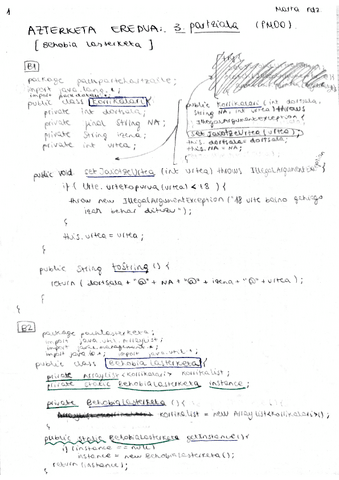 1
Maira rdz
AZTERKETA EREDUA: 3. partziala (PMOO)
[Behobia Lasterketa]
B1
package
import java.lang.*;
import
public class Korrikolari {
private int dortsala;
private final String NA;
private String izena;
private int urtea;
public Korrikolari (int dortsala,
String NA, int urtea) throws
IllegalArgumentException {
setJaiotzeUrtea (urtea);
this.dortsala = dortsala;
this.NA = NA;
}
public void setJaiotzeUrtea (int urtea) throws IllegalArgumentEx {
if (Utile. (urtea) < 18) {
throw new IllegalArgumentException ("18 urte baino gehiago
izan behar dituzu");
}
this.urtea = urtea;
}
public String toString () {
return (dortsala + "@" + NA + "@" + izena + "@" + urtea);
}
}
B2
package packlasterketa;
import java.util.ArrayList;
import java.
import java.io.*; import java.util.*;
public class Behobia Lasterketa {
private ArrayList<Korrikolari> korrikalist;
private static BehobiaLasterketa instance;
private BehobiaLasterketa () {
korrikalist = new ArrayList<Korrikolari>();
}
public static BehobiaLasterketa getInstance() {
if (instance == null)
instance = new BehobiaLasterketa();
return (instance);
}